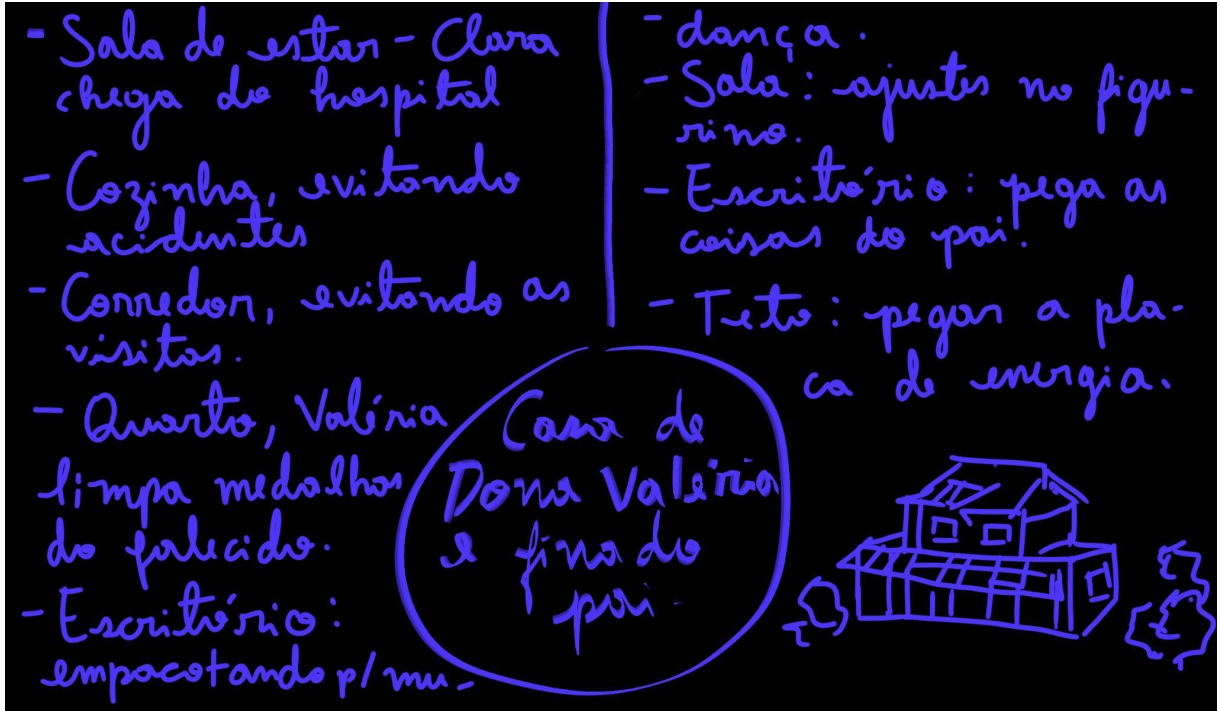 - Sala de estar - Clara
chega do hospital
- Cozinha, evitando
acidentes
- Corredor, evitando as
visitas.
- Quarto, Valéria
limpa medalhas
do falecido.
- Escritório:
empacotando p/ mu-
- dança.
- Sala: ajustes no figu-
rino.
- Escritório: pega as
coisas do pai.
- Teto: pegar a pla-
ca de energia.
Casa de
Dona Valéria
e fina do
pai.